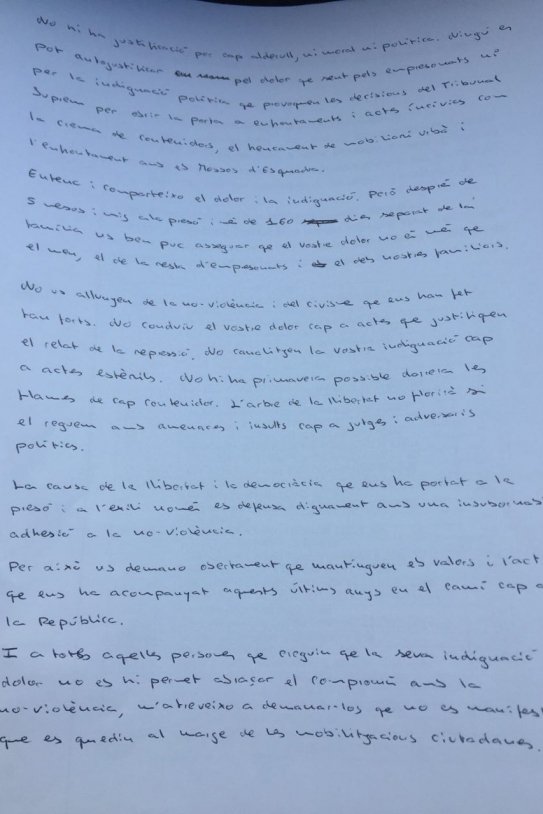 No hi ha justificació per cap aldarull, ni moral ni política. Ningú es
pot autojustificar pel dolor qe sent pels empresonats ni
per la indignació política qe provoquen les decisions del Tribunal
Suprem per obrir la porta a enfrontaments i actes incívics com
la crema de contenidors, el trencament de mobiliari urbà i
l'enfrontament amb els Mossos d'Esquadra.
Entenc i comparteixo el dolor i la indignació. Però després de
5 mesos i mig a la presó i més de 160 dies separat de la
família us ben puc assegurar qe el vostre dolor no és més qe
el meu, el de la resta d'empresonats i el dels nostres familiars.
No us allunyen de la no-violència i del civisme qe ens han fet
tan forts. No conduiu el vostre dolor cap a actes qe justifiqen
el relat de la repressió. No canalitzen la vostra indignació cap
a actes estèrils. No hi ha primavera possible darrera les
flames de cap contenidor. L'arbre de la llibertat no florirà si
el reguem amb amenaces i insults cap a jutges i adversaris
polítics.
La causa de la llibertat i la democràcia qe ens ha portat a la
presó i a l'exili només es defensa dignament amb una insubornab
adhesió a la no-violència.
Per això us demano obertament qe mantinguen els valors i l'act
qe ens ha acompanyat aquests últims anys en el camí cap a
la República.
I a totes aqelles persones qe creguin qe la seva indignació
dolor no els hi permet abraçar el compromís amb la
no-violència, m'atreveixo a demanar-los qe no es manifes
que es quedin al marge de les mobilitzacions ciutadanes.